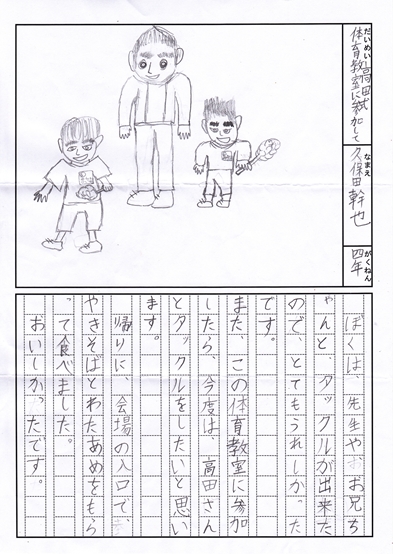 だいめい
高田式
体育教室に参加して
なまえ
久保田幹也
がくねん
四年
ぼくは、先生や、お兄ち
ゃんと、タックルが出来た
ので、とてもうれしかった
です。
また、この体育教室に参加
したら、今度は、高田さん
とタックルをしたいと思い
ます。
帰りに、会場の入口で、
やきそばとわたあめをもら
って食べました。
おいしかったです。